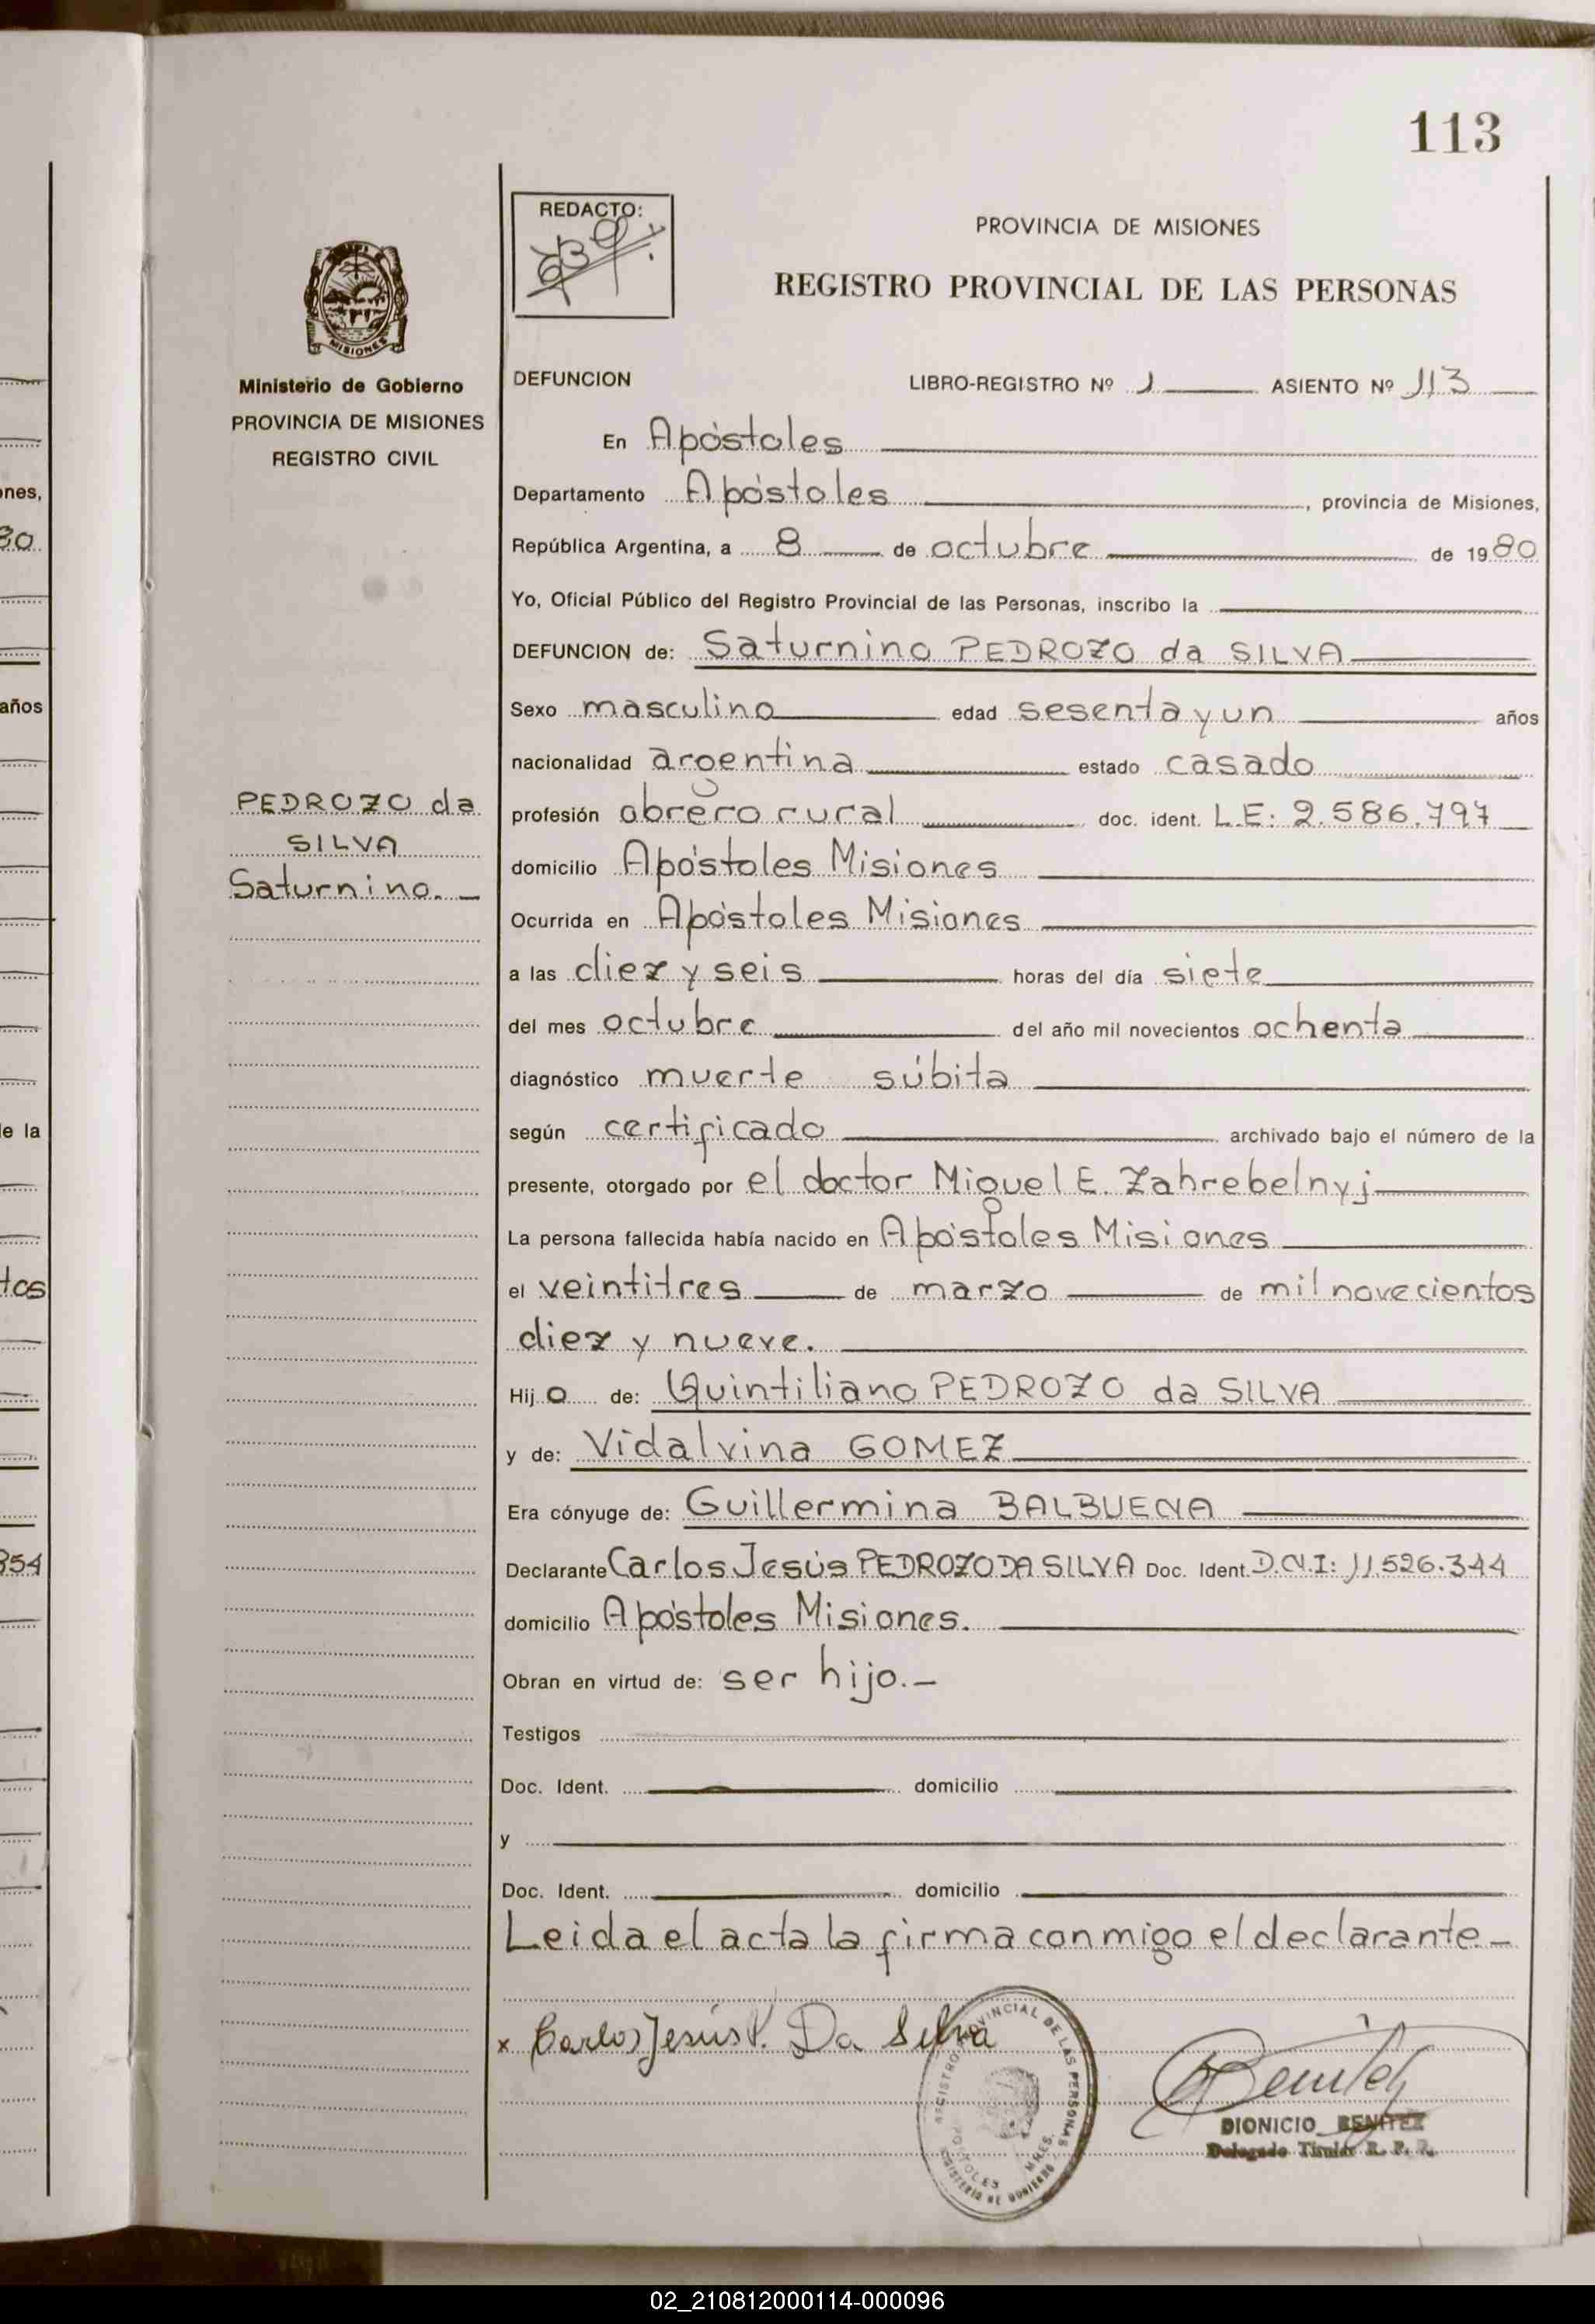 113
REDACTO:
PROVINCIA DE MISIONES
REGISTRO PROVINCIAL DE LAS PERSONAS
MISIONES
Ministerio de Gobierno
PROVINCIA DE MISIONES
REGISTRO CIVIL
DEFUNCION LIBRO-REGISTRO Nº 1 ASIENTO Nº 113
En Apóstoles
Departamento Apóstoles, provincia de Misiones,
República Argentina, a 8 de octubre de 1980
Yo, Oficial Público del Registro Provincial de las Personas, inscribo la
DEFUNCION de: Saturnino PEDROZO da SILVA
Sexo masculino edad sesenta y un años
nacionalidad argentina estado casado
PEDROZO da
SILVA
Saturnino.-
profesión obrero rural doc. ident. L.E: 2.586.797
domicilio Apóstoles Misiones
Ocurrida en Apóstoles Misiones
a las diez y seis horas del día siete
del mes octubre del año mil novecientos ochenta
diagnóstico muerte súbita
según certificado archivado bajo el número de la
presente, otorgado por el doctor Miguel E. Zahrebelnyj
La persona fallecida había nacido en Apóstoles Misiones
el veintitres de marzo de mil novecientos
diez y nueve.
Hijo de: Quintiliano PEDROZO da SILVA
y de: Vidalvina GOMEZ
Era cónyuge de: Guillermina BALBUENA
Declarante Carlos Jesús PEDROZO DA SILVA Doc. Ident. D.N.I: 11.526.344
domicilio Apóstoles Misiones.
Obran en virtud de: ser hijo.-
Testigos
Doc. Ident. domicilio
y
Doc. Ident. domicilio
Leida el acta la firma conmigo el declarante.-
x Carlos Jesús P. Da Silva
REGISTRO PROVINCIAL DE LAS PERSONAS
APOSTOLES MNES.
MINISTERIO DE GOBIERNO
DBenitez
DIONICIO BENITEZ
Delegado Titular R. P. P.
ones,
80
años
de la
tos
354
02_210812000114-000096